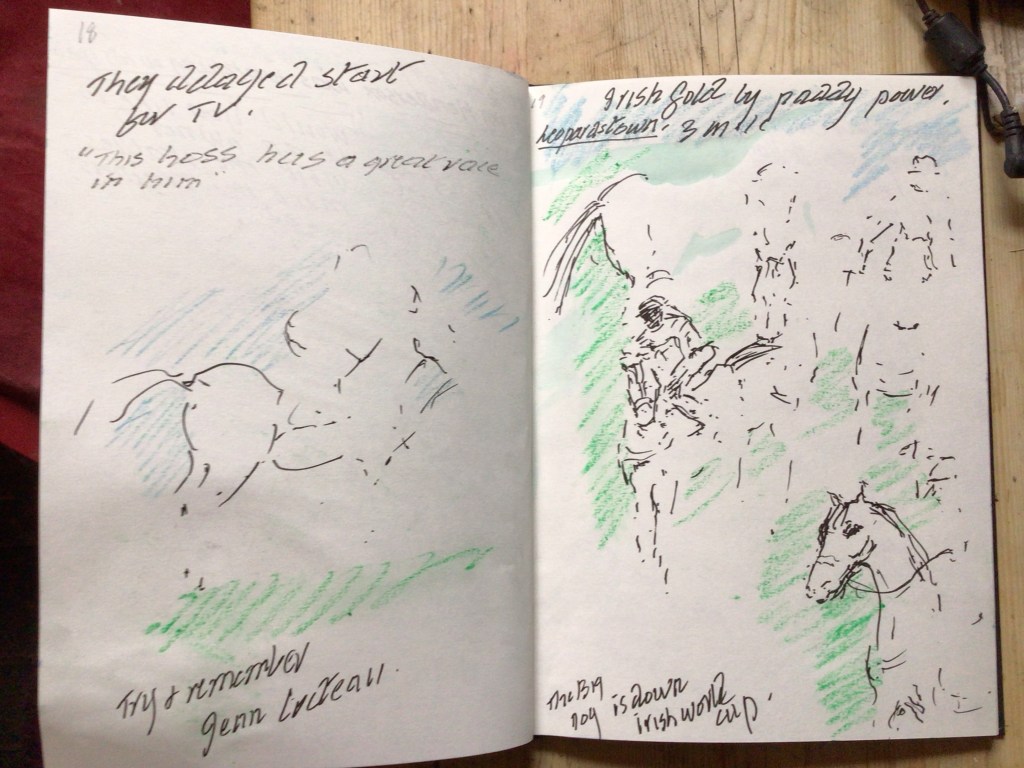 18
They delayed start
for TV.
"This hoss has a great race
in him"
Try & remember
genn
19
Irish Gold by paddy power.
Leopardstown. 3 mile
The Big
Dog is down
irish world
cup.